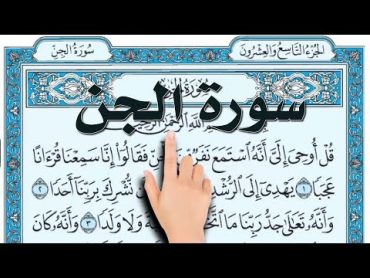 الجزء التاسع والعشرون
سورة الجن
سورة الجن
قُلْ أُوحِىَ إِلَىَّ أَنَّهُ ٱسْتَمَعَ نَفَرٌ فَقَالُوٓا۟ إِنَّا سَمِعْنَا قُرْءَانًا
عَجَبًا ١ يَهْدِىٓ إِلَى ٱلرُّشْدِ نُّشْرِكَ بِرَبِّنَآ أَحَدًا ٢
وَأَنَّهُۥ تَعَٰلَىٰ جَدُّ رَبِّنَا مَا وَلَا وَلَدًا ٣ وَأَنَّهُۥ كَانَ